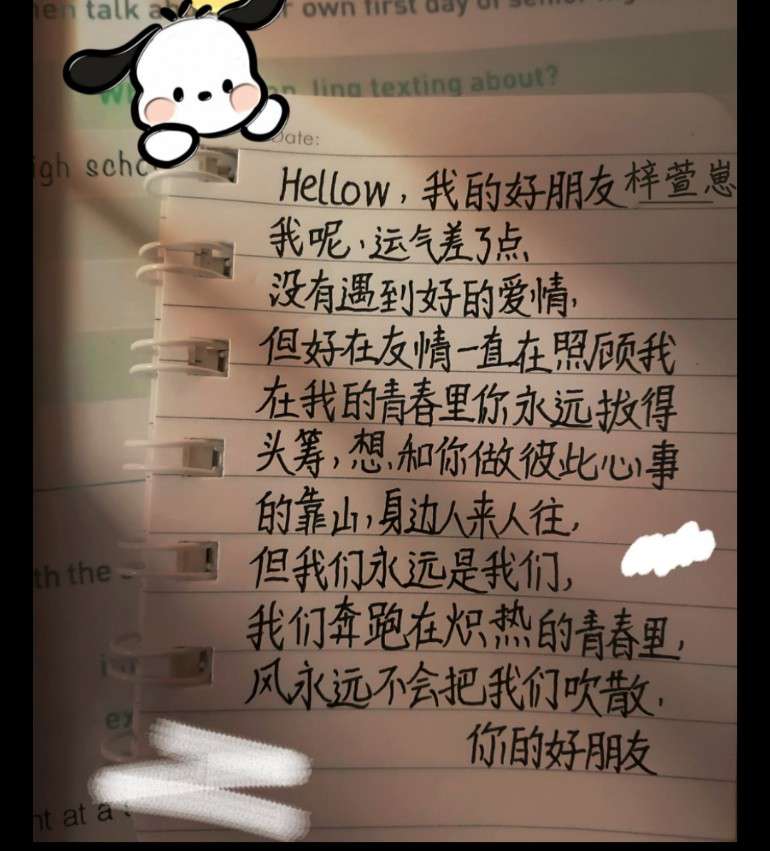 en talk ab r own first day of senior
W n ling texting about?
igh scho
Date:
Hellow，我的好朋友梓萱崽
我呢，运气差了点
没有遇到好的爱情，
但好在友情一直在照顾我
在我的青春里你永远拔得
头筹，想和你做彼此心事
的靠山，身边人来人往，
但我们永远是我们，
我们奔跑在炽热的青春里，
风永远不会把我们吹散，
你的好朋友
th the
ex
nt at a